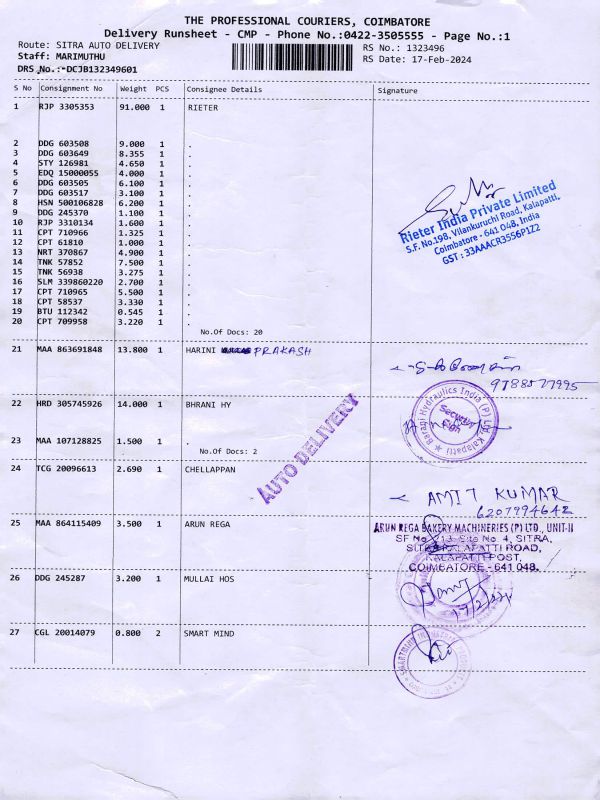 THE PROFESSIONAL COURIERS, COIMBATORE
Delivery Runsheet - CMP - Phone No.:0422-3505555 - Page No.:1
Route: SITRA AUTO DELIVERY
Staff: MARIMUTHU
DRS No.: DCJB132349601
RS No.: 1323496
RS Date: 17-Feb-2024
S No Consignment No Weight PCS Consignee Details Signature
1 RJP 3305353 91.000 1 RIETER
2 DDG 603508 9.000 1 .
3 DDG 603649 8.355 1 .
4 STY 126981 4.650 1 .
5 EDQ 15000055 4.000 1 .
6 DDG 603505 6.100 1 .
7 DDG 603517 3.100 1 .
8 HSN 500106828 6.200 1 .
9 DDG 245370 1.100 1 .
10 RJP 3310134 1.600 1 .
11 CPT 710966 1.325 1 .
12 CPT 61810 1.000 1 .
13 NRT 370867 4.900 1 .
14 TNK 57852 7.500 1 .
15 TNK 56938 3.275 1 .
16 SLM 339860220 2.700 1 .
17 CPT 710965 5.500 1 .
18 CPT 58537 3.330 1 .
19 BTU 112342 0.545 1 .
20 CPT 709958 3.220 1 .
No.Of Docs: 20
Rieter India Private Limited
S.F. No.198, Vilankuruchi Road, Kalapatti,
Coimbatore - 641 048, India
GST : 33AAACR3556P1Z2
21 MAA 863691848 13.800 1 HARINI PRAKASH
9788577995
22 HRD 305745926 14.000 1 BHRANI HY
Barani Hydraulics India (P) Ltd, Kalapatti
Security
Sign
23 MAA 107128825 1.500 1 .
No.Of Docs: 2
AUTO DELIVERY
24 TCG 20096613 2.690 1 CHELLAPPAN
AMIT KUMAR
6207994642
25 MAA 864115409 3.500 1 ARUN REGA
ARUN REGA BAKERY MACHINERIES (P) LTD., UNIT-II
SF No. 213, Site No. 4, SITRA,
SITRA KALAPATTI ROAD,
KALAPATTI POST,
COIMBATORE - 641 048.
26 DDG 245287 3.200 1 MULLAI HOS
17/2/24
27 CGL 20014079 0.800 2 SMART MIND